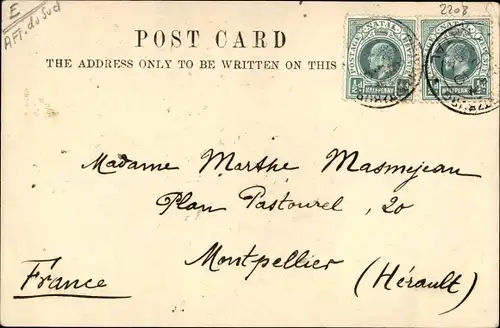 E
Afr. du Sud
2208
POST CARD
THE ADDRESS ONLY TO BE WRITTEN ON THIS
POSTAGE NATAL REVENUE
½d HALFPENNY
POSTAGE NATAL REVENUE
HALFPENNY ½d
Madame Marthe Masmejean
Plan Pastourel, 20
Montpellier (Hérault)
France